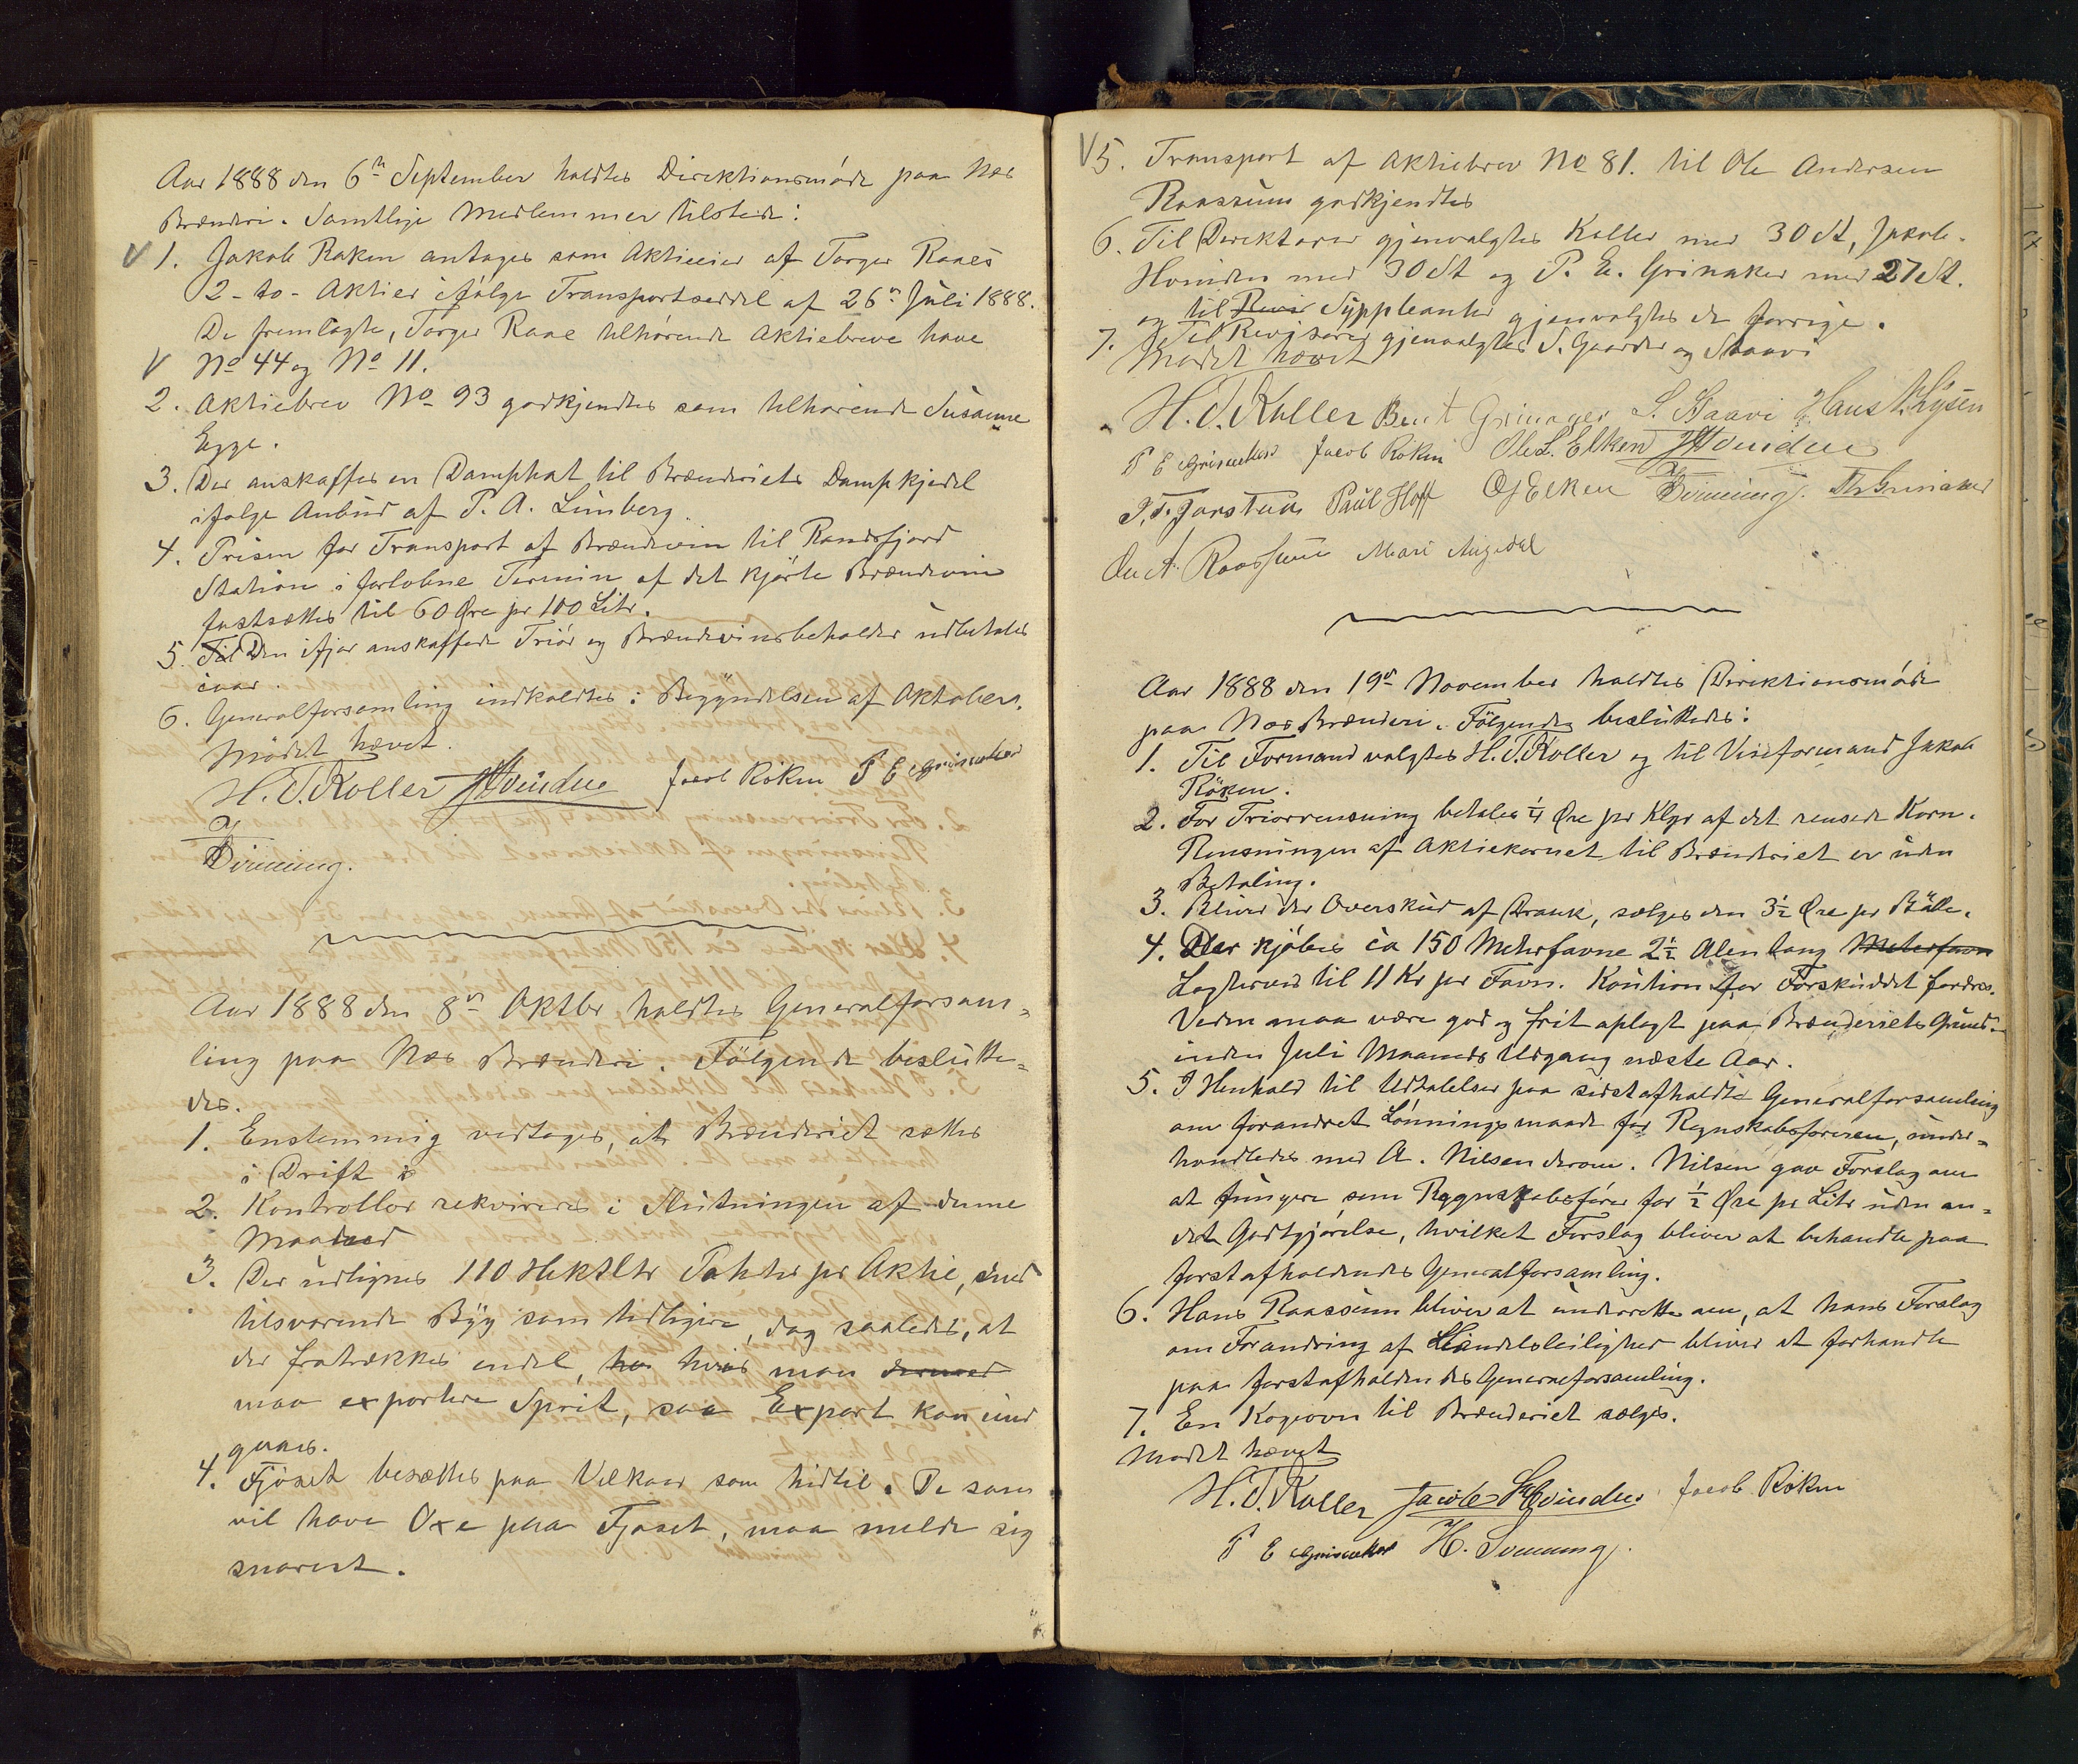 Aar 1888 den 6te September holdtes Direktionsmöde paa Næs
Brænderi. Samtlige Medlemmer tilstede:
V 1. Jakob Røken antages som Aktieeier af Torger Raaes
2 - to - Aktier ifølge Transportseddel af 26de Juli 1888.
De fremlagte, Torger Raae tilhørende Aktiebreve have
V No 44 og No 11.
2. Aktiebrev No 93 godkjendtes som tilhørende Susanne
Egge.
3. Der anskaffes en Damphat til Brænderiets Dampkjedel
ifølge Anbud af P. A. Limberg.
4. Prisen for Transport af Brændevin til Randsfjord
Station i forløbne Termin af det kjørte Brændevin
fastsættes til 60 Øre pr 100 Litr.
5. Til Den ifjor anskaffede Triör og Brændevinsbeholder udbetales
iaar.
6. Generalforsamling indkaldtes i Begyndelsen af Oktober.
Mødet hævet.
H. T. Koller JHvinden Jacob Röken P E Grinaker
Dinning.
Aar 1888 den 8de Oktbr holdtes Generalforsam-
ling paa Næs Brænderi. Følgende beslutte-
des.
1. Enstemmig vedtoges, at Brænderiet sættes
i Drift i
2. Kontrollør rekvireres i Slutningen af denne
Maaned
3. Der udlignes 110 Hektltr Poteter pr Aktie, med
tilsvarende Byg som tidligere, dog saaledes, at
der fratrækkes endel, ho hvis man dermed
maa exportere Sprit, saa Export kan und
gaaes.
4. Fjøset besættes paa Vilkaar som hidtil. De som
vil have Oxe paa Fjøset, maa melde sig
snarest.
V 5. Transport af Aktiebrev No 81. til Ole Andersen
Raassum godkjendtes
6. Til Direktører gjenvalgtes Koller med 30 St, Jakob
Hvinden med 30 St og P. E. Grinaker med 27 St.
og til Revis Suppleanter gjenvalgtes de forrige.
7. Til Revisorer gjenvalgtes S. Gaarder og Staavi
Mødet hævet
H. T. Koller Bent Grinager S. Staavi Hans N. Lysen
P E Grinaker Jacob Röken Ole L. Elken JHvinden
Paul Hoff O J Elken Dinning. Th Grinaker
Ole A. Raassum Mari
Aar 1888 den 19de November holdtes Direktionsmöde
paa Næs Brænderi. Følgendes besluttedes:
1. Til Formand valgtes H. T. Koller og til Viseformand Jakob
Röken.
2. For Triørrensning betales 1/4 Øre pr Klgr af det rensede Korn.
Rensningen af Aktiekornet til Brænderiet er uden
Betaling.
3. Bliver der Overskud af Drank, sælges den 3 1/2 Øre pr Bötte.
4. Der kjøbes ca 150 Meterfavne 2 1/2 Alen lang Meterfavn
Lagterved til 11 Kr per Favn. Kaution for Forskuddet fordres.
Veden maa være god og frit oplagt paa Brænderiets Grund
inden Juli Maaneds Udgang næste Aar.
5. I Henhold til Udtalelser paa sidst afholdte Generalforsamling
om forandret Lønningsmaade for Regnskabsføreren, under-
handledes med A. Nilsen derom. Nilsen gav Forslag om
at fungere som Regnskabsfører for 1/2 Øre pr Litr uden an-
den Godtgjørelse, hvilket Forslag bliver at behandle paa
førstafholdendes Generalforsamling.
6. Hans Raassum bliver at underrette om, at hans Forslag
om Forandring af Handelsleilighed bliver at forhandle
paa førstafholdendes Generalforsamling.
7. En Kogeovn til Brænderiet sælges.
Mødet hævet
H. T. Koller Jacob Hvinden Jacob Röken
P E Grinaker H.